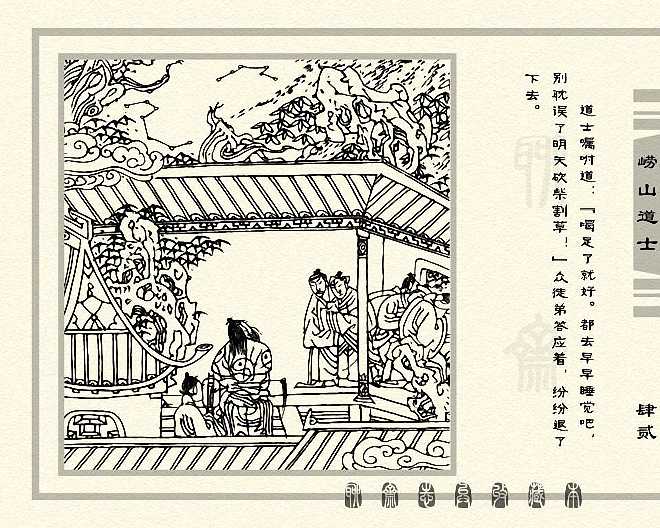 崂山道士
肆贰
道士嘱咐道：「喝足了就好。都去早早睡觉吧，
别耽误了明天砍柴割草！」众徒弟答应着，纷纷退了
下去。